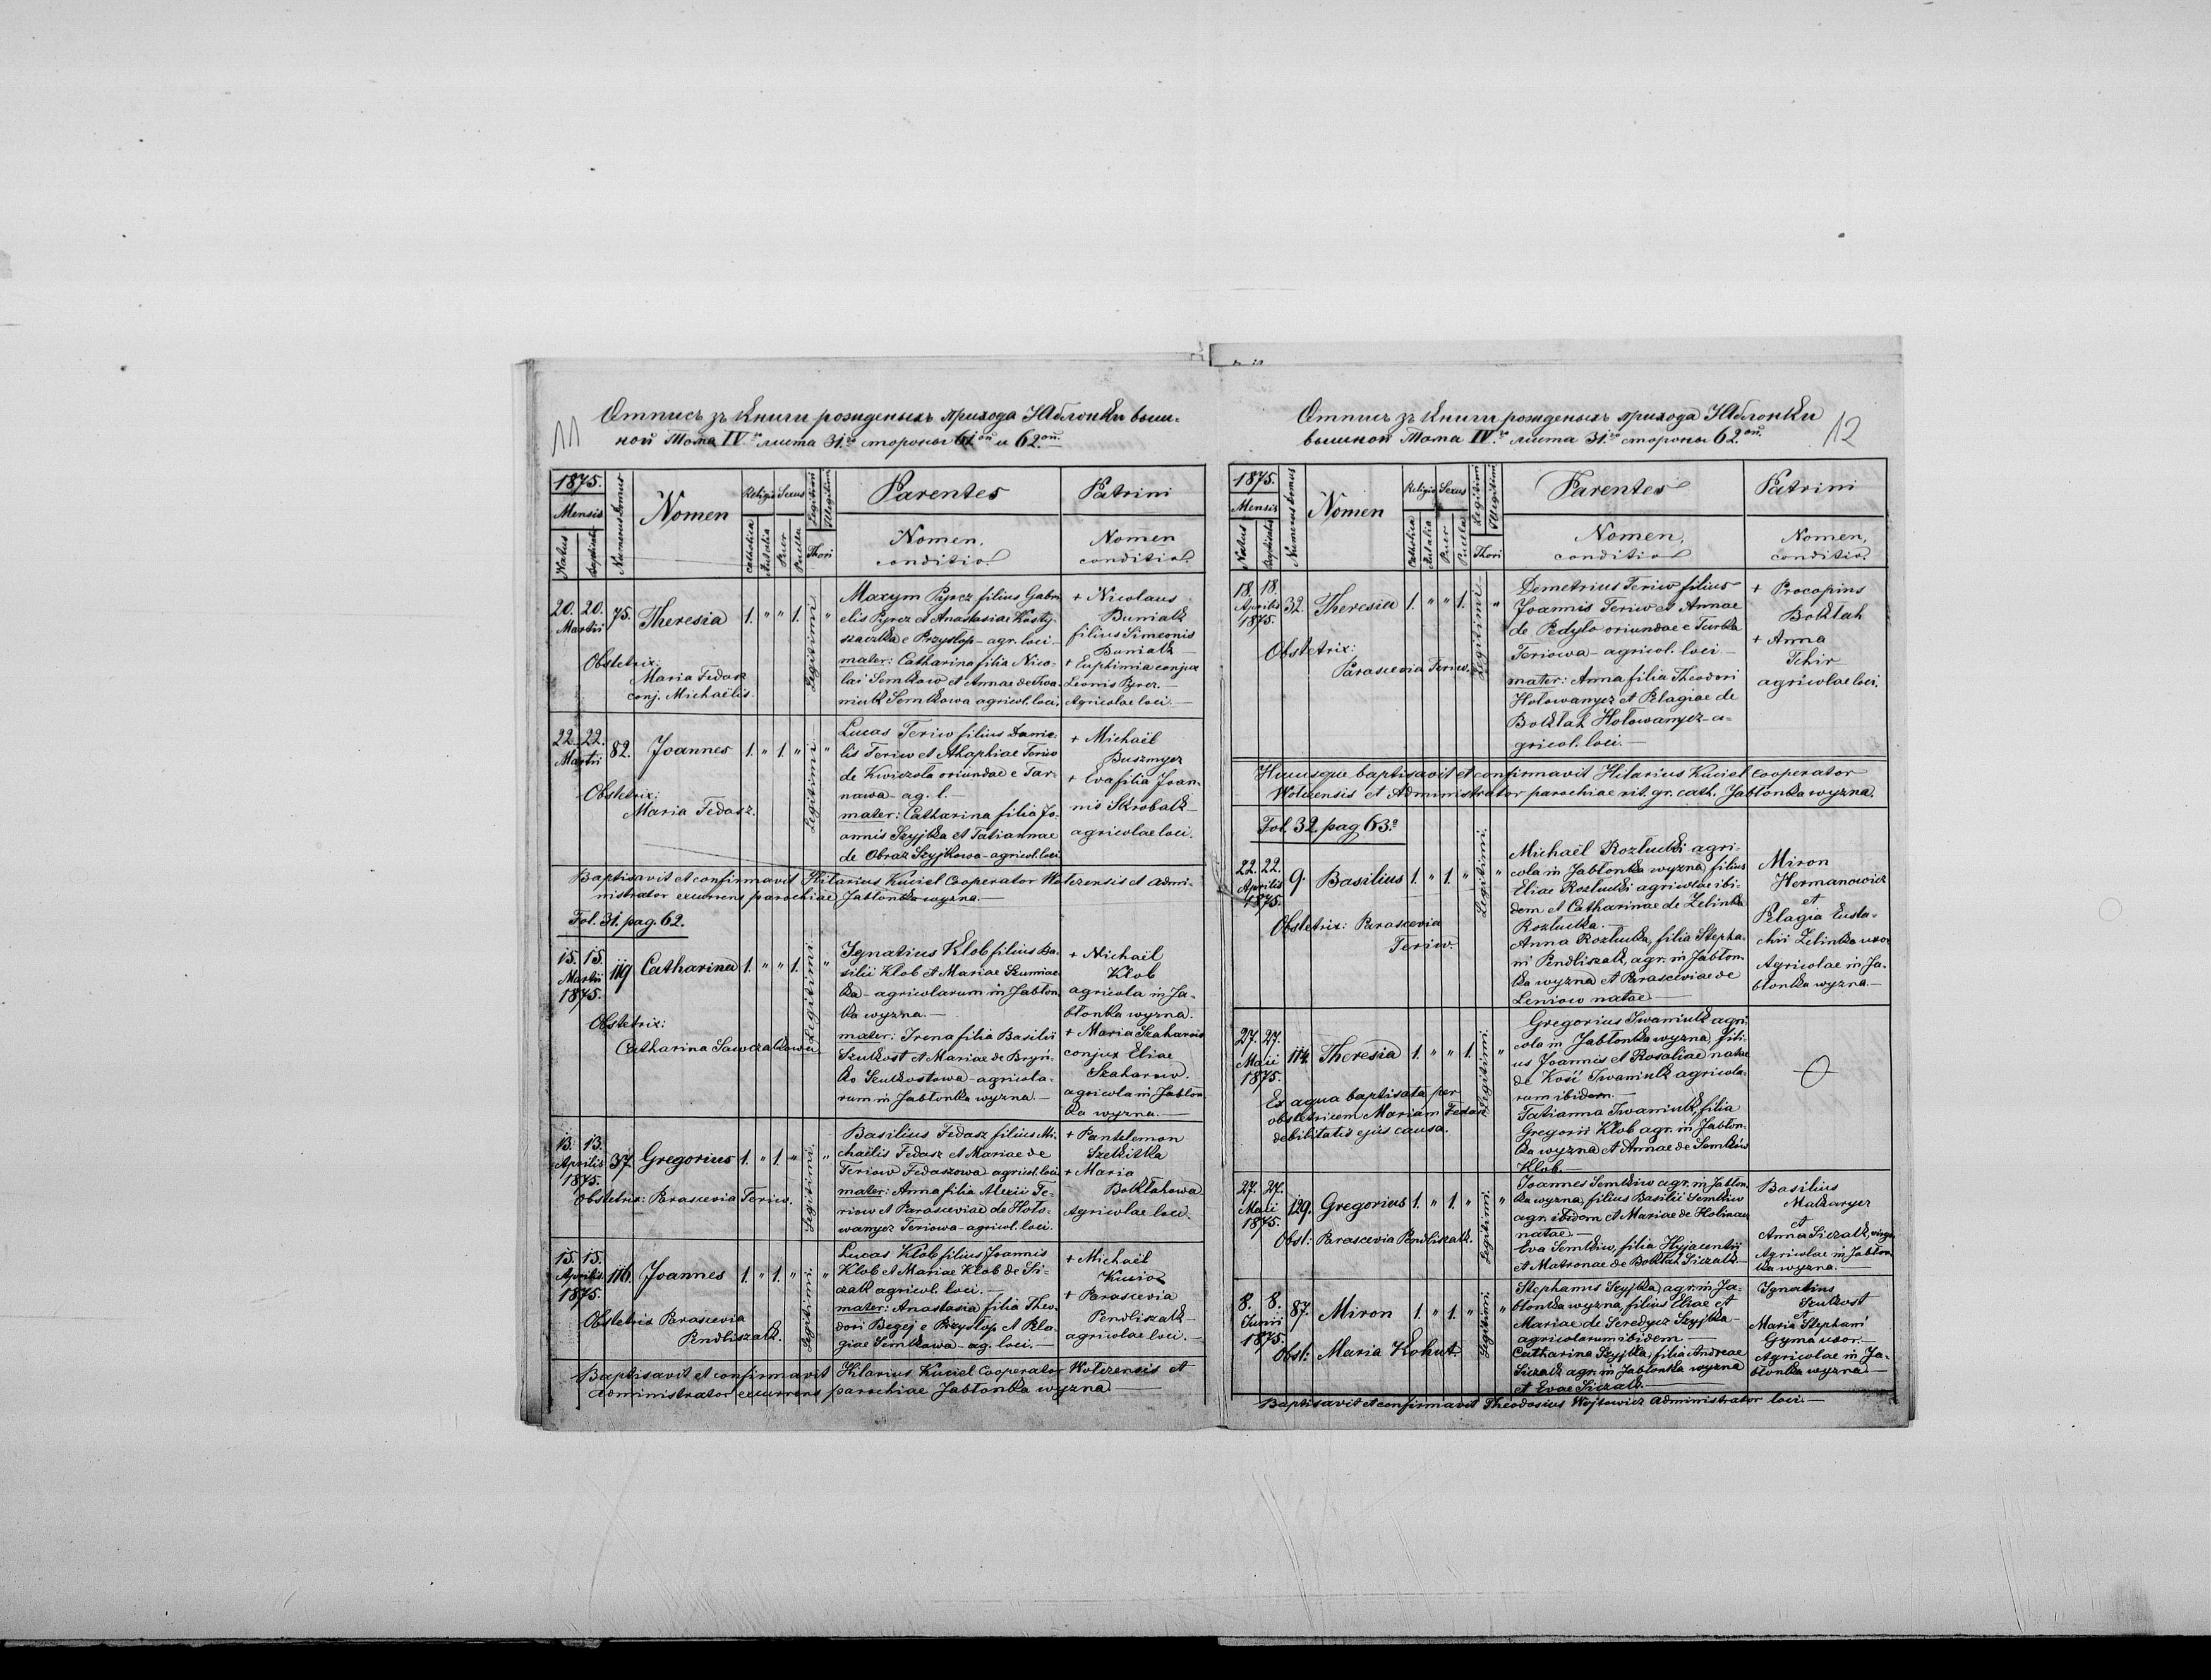 11
Отпись зъ книги рожденыхъ прихода Яблонки выш-
ной Тома IV.го листа 31.го стороны 61ои и 62.ои.
1875.
Mensis
Natus
Baptisatus
Numerus domus
Nomen
Religio
Catholica
Aut alia
Sexus
Puer
Puella
Legitimi
Illegitimi
Thori
Parentes
Nomen,
conditio
Patrini
Nomen
conditio.
20. 20. 75. Theresia 1. " " 1. Legitimi "
Martii
Obstetrix:
Maria Fedasz
conj. Michaëlis.
Maxym Pyrcz filius Gabri
elis Pyrcz et Anastasiae Kosty-
szaczka e Przysłop - agr. loci.
mater: Catharina filia Nico-
lai Semkow et Annae de Iwa
niuk Semkowa agricol. loci.
+ Nicolaus
Buniak
filius Simeonis
Buniak
+ Euphimia conjux
Leonis Pyrcz.
Agricolae loci.
22. 22. 82. Joannes 1. " 1. " Legitimi "
Martii
Obstetrix:
Maria Fedasz.
Lucas Teriw filius Danie-
lis Teriw et Ahaphiae Teriw
de Kwiczola oriundae e Tar-
nawa - ag. l.
mater: Catharina filia Jo-
annis Szyjka et Tatiannae
de Obraz Szyjkowa - agricol. loci
+ Michaël
Buszmycz
+ Eva filia Joan-
nis Skrobak
agricolae loci.
Baptisavit et confirmavit Hilarius Kuciel Cooperator Wołczensis et Admi-
nistrator excurrens parochiae Jabłonka wyzna.
Fol. 31. pag. 62.
15. 15. 119 Catharina 1. " " 1. Legitimi "
Martii
1875.
Obstetrix:
Catharina Sawczakowa.
Ignatius Klob filius Ba-
silii Klob et Mariae Szumiac
ka - agricolarum in Jabłon-
ka wyzna.
mater: Irena filia Basilii
Szukost et Mariae de Bryń-
ko Szukostowa - agricola-
rum in Jabłonka wyzna.
+ Michaël
Klob
agricola in Ja-
błonka wyzna.
+ Maria Szaharow
conjux Eliae
Szaharow.
agricola in Jabłon
ka wyzna.
13. 13. 37 Gregorius 1. " 1. " Legitimi. "
Aprilis
1875.
Obstetrix: Parascevia Teriw.
Basilius Fedasz filius Mi-
chaëlis Fedasz et Mariae de
Teriow Fedaszowa agricol. loci
mater: Anna filia Alexii Te-
riow et Parasceviae de Hoło-
wanycz Teriowa - agricol. loci.
+ Pantelemon
Szekitka
+ Maria
Bokłahowa
Agricolae loci.
15. 15. 116. Joannes 1. " 1. " Legitimi. "
Aprilis
1875.
Obstetrix Parascevia
Pendliszak.
Lucas Klob filius Joannis
Klob et Mariae Klob de Si-
czak agricol. loci.
mater: Anastasia filia Theo-
dori Begej e Przysłop et Pela-
giae Semkowa - ag. loci.
+ Michaël
+ Parascevia
Pendliszak
agricolae loci.
Baptisavit et confirmavit Hilarius Kuciel Cooperator Wołczensis et
Administrator excurrens parochiae Jabłonka wyzna
12
Отпись зъ книги рожденыхъ прихода Яблонки
вышной Тома IV.го листа 31.го стороны 62.ои.
1875.
Mensis
Natus
Baptisatus
Numerus domus
Nomen
Religio
Catholica
Aut alia
Sexus
Puer
Puella
Legitimi
Illegitimi
Thori
Parentes
Nomen,
conditio
Patrini
Nomen,
conditio.
18. 18. 32. Theresia 1. " " 1. Legitimi "
Aprilis
1875.
Obstetrix:
Parascevia Teriw.
Demetrius Teriw filius
Joannis Teriw et Annae
de Pedylo oriundae e Turka
Teriowa - agricol. loci
mater: Anna filia Theodori
Hołowanycz et Pelagiae de
Bokłah Hołowanycz - a-
gricol. loci.
+ Procopius
Bokłah
+ Anna
Tchir
agricolae loci.
Hucusque baptisavit et confirmavit Hilarius Kuciel Cooperator
Wołczensis et Administrator parochiae rit. gr. cath. Jabłonka wyzna.
Fol. 32. pag 63.
22. 22. 9. Basilius 1. " 1. " Legitimi. "
Aprilis
1875.
Obstetrix: Parascevia
Teriw.
Michaël Rozłucki agri-
cola in Jabłonka wyzna, filius
Eliae Rozłucki agricolae ibi-
dem et Catharinae de Zelinka
Rozłucka.
Anna Rozłucka, filia Stepha-
ni Pendliszak, agr. in Jabłon-
ka wyzna et Parasceviae de
Leniow natae
Miron
Hermanowicz
et
Pelagia Eusta-
chii Zelinka uxor
Agricolae in Ja-
błonka wyzna.
27. 27. 114. Theresia 1. " " 1. Legitimi. "
Maii
1875.
Ex aqua baptisata per
obstetricem Mariam Fedasz
debilitatis ejus causa.
Gregorius Iwaniuk agri-
cola in Jabłonka wyzna, fili-
us Joannis et Rosaliae natae
de Kość Iwaniuk agricola-
rum ibidem.
Tatianna Iwaniuk, filia
Gregorii Klob agr. in Jabłon-
ka wyzna et Annae de Semków
Klob.
27. 27. 129. Gregorius 1. " 1. " Legitimi. "
Maii
1875.
Obst: Parascevia Pendliszak.
Joannes Semkiw agr. in Jabłon-
ka wyzna, filius Basilii Semkiw
agr. ibidem et Mariae de Holinau
natae
Eva Semkiw, filia Hyacenti
et Matronae de Bokłah Siczak.
Basilius
Makarycz
et
Anna Siczak, virgo
Agricolae in Jabłon
ka wyzna.
8. 8. 87. Miron 1. " 1. " Legitimi. "
Junii
1875.
Obst: Maria Kohut.
Stephanus Szyjka, agr. in Ja-
błonka wyzna, filius Eliae et
Mariae de Seredycz Szyjka
agricolarum ibidem.
Catharina Szyjka, filia Andreae
Siczak agr. in Jabłonka wyzna
et Evae Siczak.
Ignatius
Szukost
et
Maria Stephani
Gyma uxor.
Agricolae in Ja-
błonka wyzna
Baptisavit et confirmavit Theodosius Wojtowicz Administrator loci.